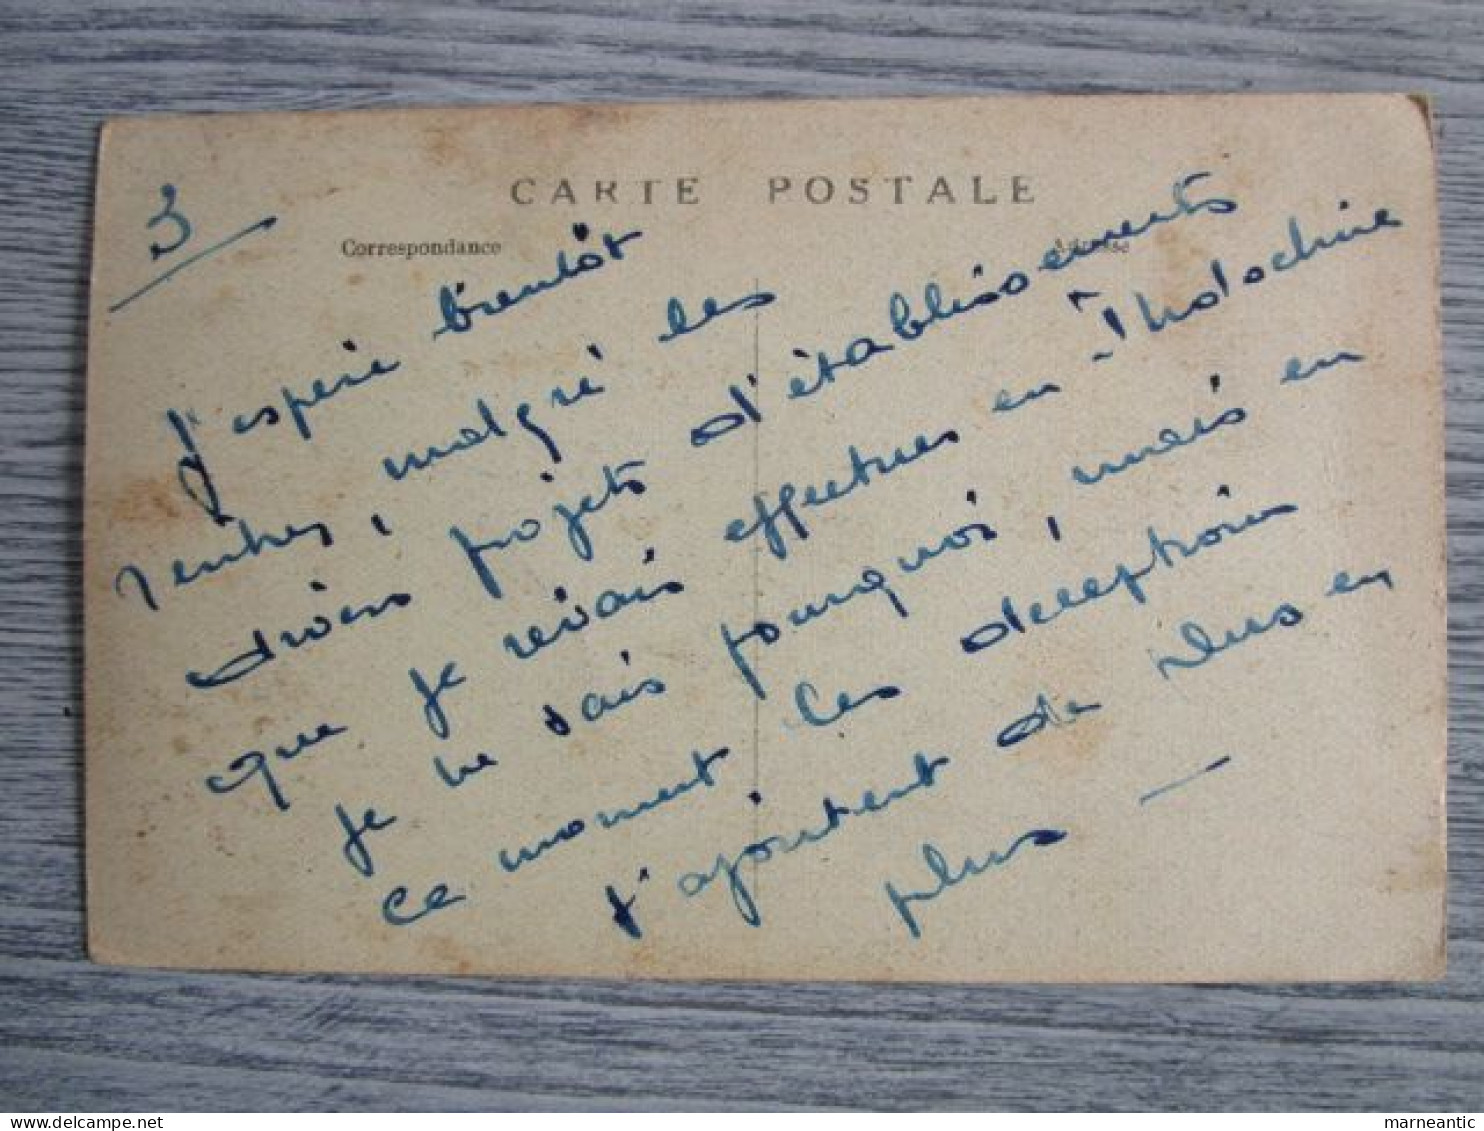 CARTE POSTALE
Correspondance
Adresse
3
J'espère bientôt
rentrer, malgré les
divers projets d'établissements
que je rêvais effectuer en Indochine
je ne sais pourquoi, mais en
ce moment les deceptions
s'ajoutent de plus en
plus —
marneantic